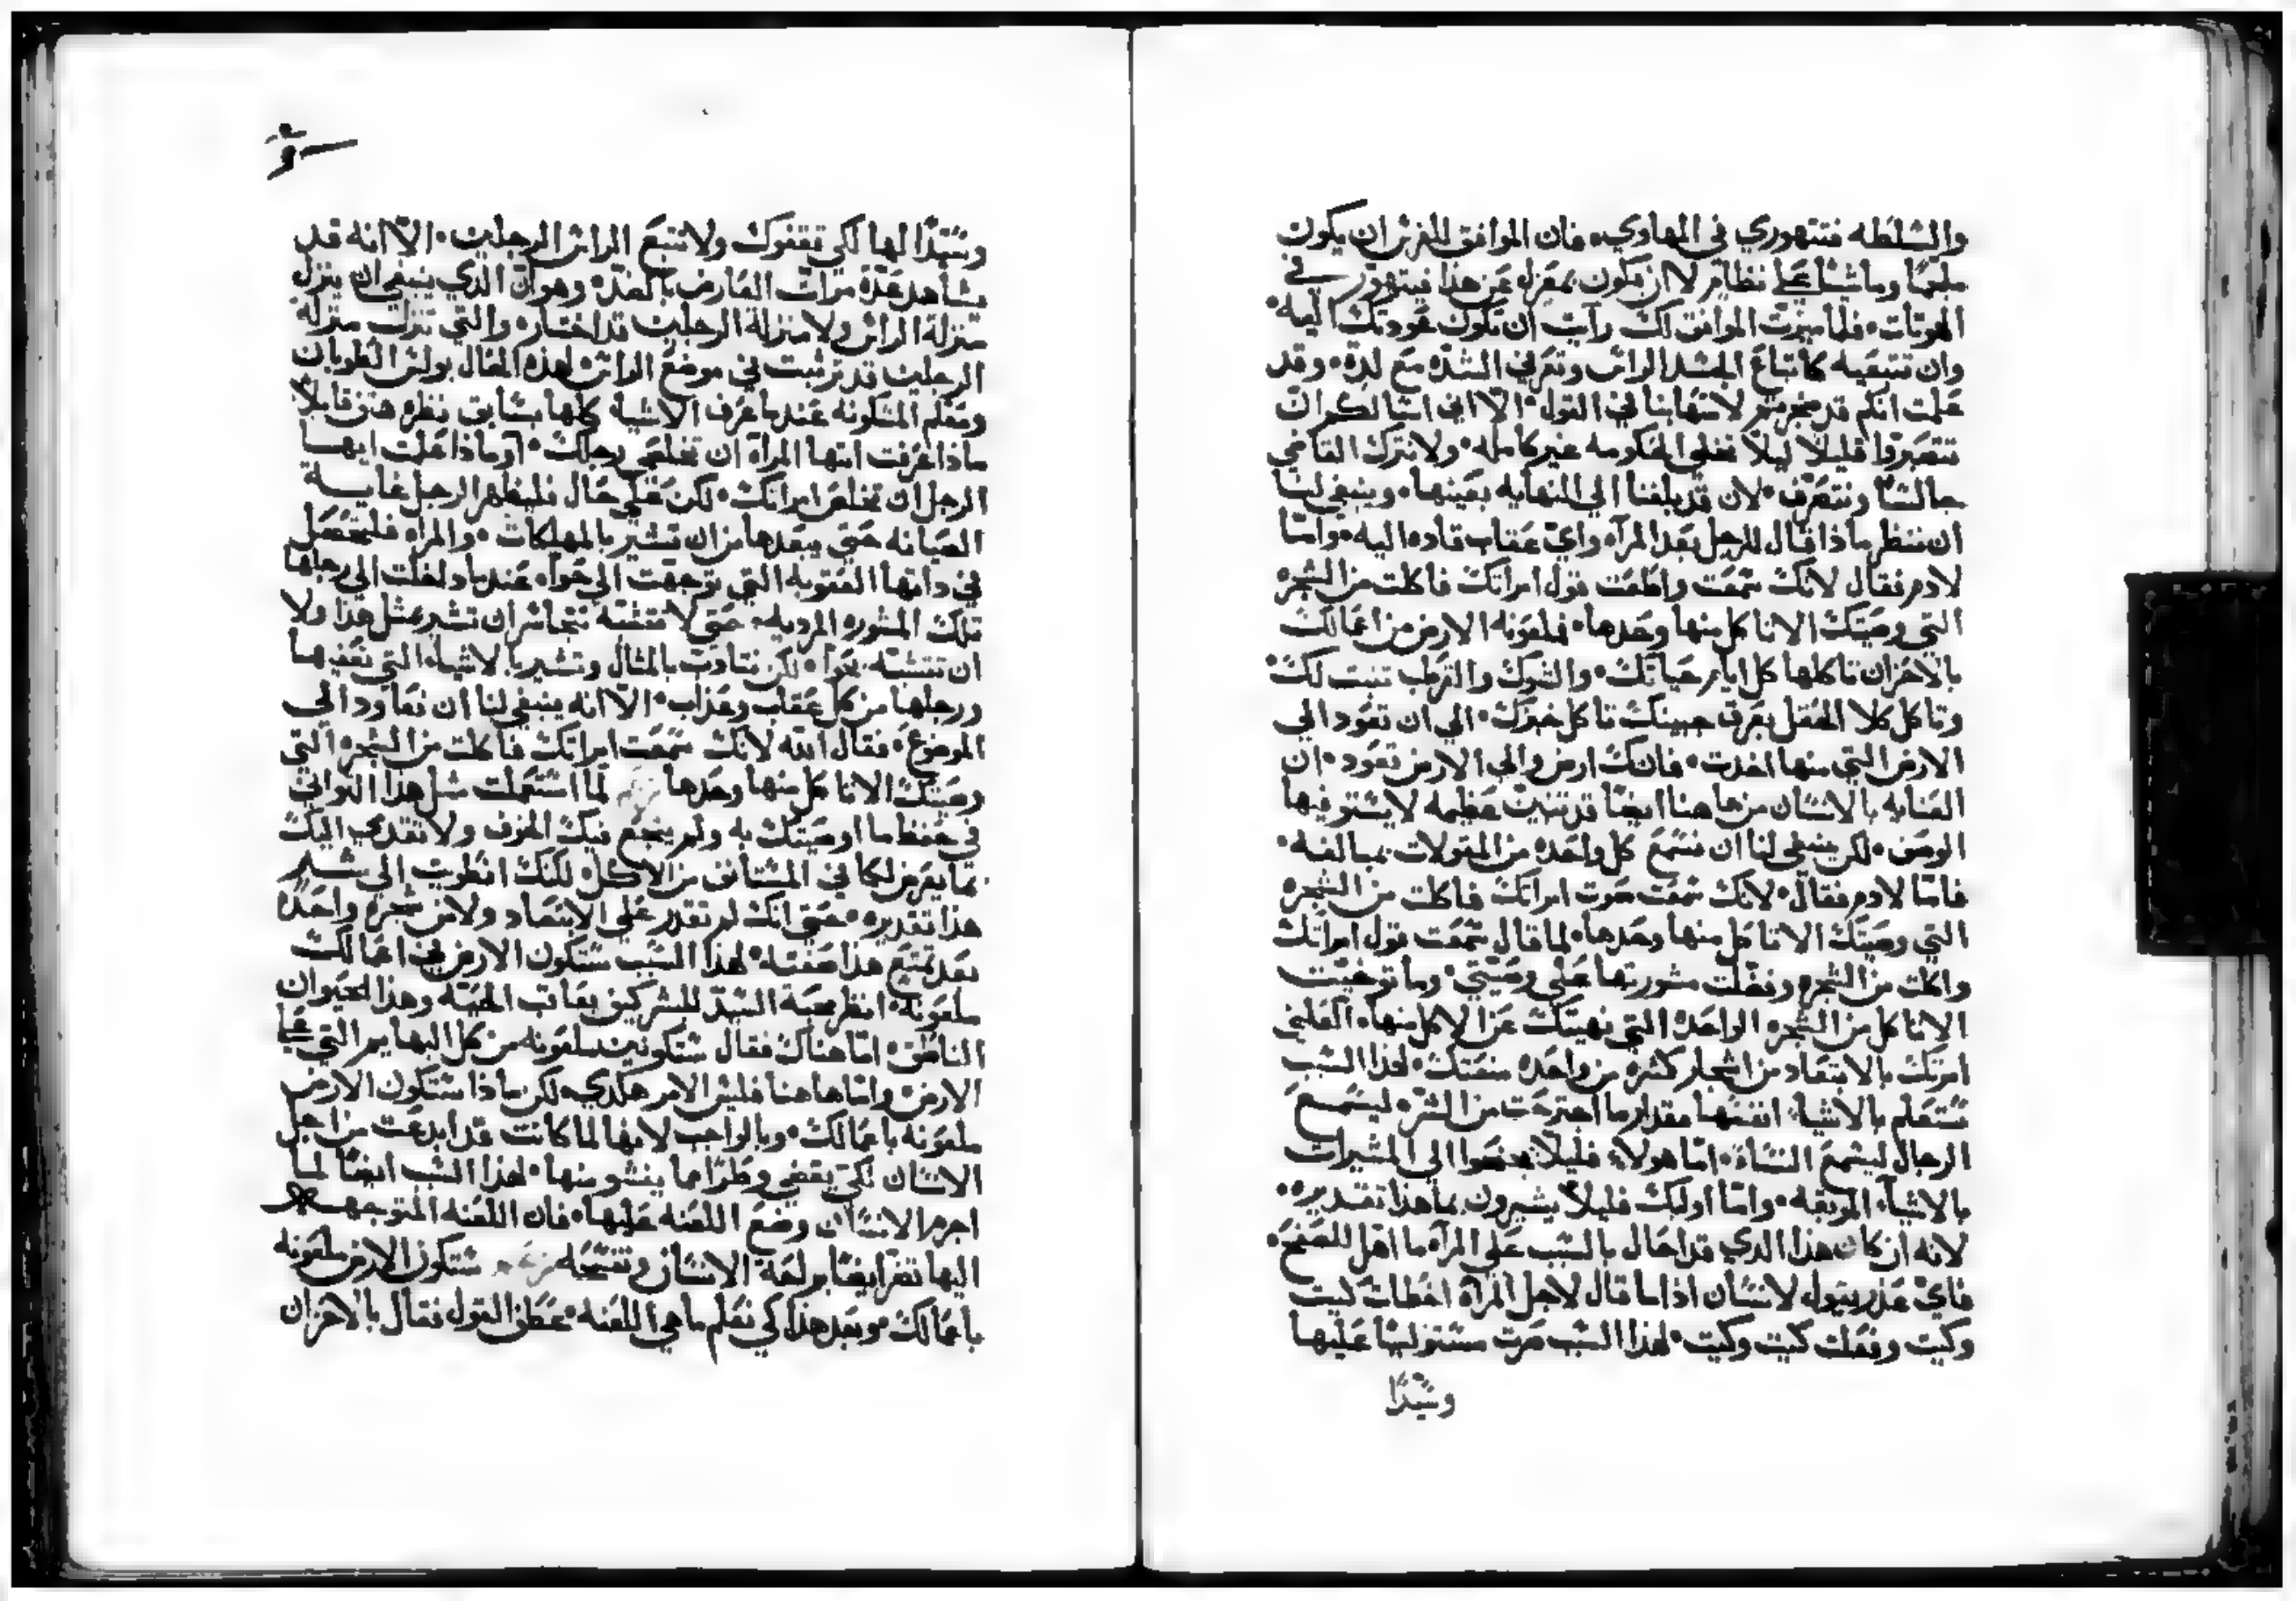 والسلطه فتتهوري في المهاوي. فان الموافق للفرس ان يكون
ملجمًا وماشيًا علي نظام لا ان يكون بمعزل عن هذا فيتهور في
الهوتات. فلما ميزت الموافق لك رايت ان تكون عودتك اليه.
وان تتبعيه كاتباع الجسد الراس وتعرفي الشده مع لده. وقد
علمت انكم قد ضجرتم لانتهابنا في القول. الا اني اسالكم ان
تتصبروا قليلاً ليلا نخلي الحكومه غير كامله. ولا نترك القاضي
جالسًا وننصرف. لان قد بلغنا الي النهايه بعينها. وينبغي لنا
ان ننظر ماذا قال للرجل بعد المرآه واي عقاب قاده اليه. واما
لادم فقال لانك سمعت واطعت قول امراتك فاكلت من الشجره
التي وصيتك الا تاكل منها وحدها. فملعونه الارض من اعمالك
بالاحزان تاكلها كل ايام حياتك. والشوك والقرطب تنبت لك.
وتاكل كلا الحقل بعرق جبينك تاكل خبزك. الي ان تعود الي
الارض التي منها اخدت. فانك ارض والي الارض تعود. ان
العنايه بالانسان من هاهنا ايضًا قد تبينت عظيمه لا يستوفيها
الوصف. لكن ينبغي لنا ان نسمع كل واحده من المقولات بمبالغه.
فاما لادم فقال. لانك سمعت صوت امراتك فاكلت من الشجره
التي وصيتك الا تاكل منها وحدها. لما قال سمعت قول امراتك
واكلت من الشجره وفضلت مشورتها علي وصيتي. وما توخيت
الا تاكل من الشجره الواحده التي نهيتك عن الاكل منها.
امرتك بالابتعاد من اشجار كثيره من واحده منعتك. لهذا السبب
ستعلم بالاشياء انفسها مقدار ما اجترحت من الشر. ليسمع
الرجال ليسمع النساء. اما هولاء فليلا يصغوا الي المشيرات
بالاشياء الموبقه. واما اوليك فليلا يشيرون بما هذا تقديره.
لانه ان كان هذا الدي قد احال بالسبب علي المرآه ما اهل للصفح.
فاي عذر يقول لانسان اذا ما قال لاجل المرآه اخطات كيت
وكيت وفعلت كيت وكيت. لهذا السبب صرت مستوليًا عليها
وسيدًا
وسيدًا لها لكي تقفوك ولا تتبع الراس الرجلين. الا انه قد
يشاهد عدة مرات العارض بالضد. وهو ان الدي ينبغي ان ينزل
منزلة الراس ولا منزلة الرجلين قد اختاره والتي تنزل منزلة
الرجلين قد ترتبت في موضع الراس لهذه الحال بولس الطوبان
ومعلم المسكونه عندما عرف الاشياء كلها بسابق نظره هتف قايلاً
ماذا عرفت ايتها المرآه ان تخلصي رجلك. او ماذا علمت ايها
الرجل ان تخلص امراتك. لكن علي حال فليظهر الرجل غاية
الصيانه حتي يبعدها من ان تشير بالمهلكات. والمراه فلتحصل
في ذاتها العقوبه التي توجهت الي حواء عندما دخلت الي رجلها
تلك المشوره المرديه. حتي لا تتجاسر ان تشير مثل هذا ولا
ان تتشبه بحواء. لكن تتادب بالمثال وتشير بالاشياء التي تعفيها
ورجلها من كل عقاب وعذاب. الا انه ينبغي لنا ان نعاود الي
الموضوع. فقال الله لانك سمعت امراتك فاكلت من الشجره التي
وصيتك الا تاكل منها وحدها لما استعملت مثل هذا التواني
في حفظ ما اوصيتك به ولم ينجع فيك الخوف ولا تقدمي اليك
بما يعرض لكما في المستانف من الاكل. لكنك انطويت الي شر
هذا تقديره. حتي انك لم تقدر علي الابتعاد ولا من شجره واحده
بعد تمتع هذا صفته. لهذا السبب ستكون الارض في اعمالك
ملعونه. انظر محبة السيد للبشر كيف يعاقب الحيه وهذا الحيوان
الناطق. اما هناك فقال ستكونين ملعونه من كل البهايم التي علي
الارض. واما هاهنا فليس الامر هكدي. لكن ماذا ستكون الارض
ملعونه باعمالك. وبالواجب لانها لما كانت قد ابدعت من اجل
الانسان لكي يقضي وطرًا مما ينشو منها. لهذا السبب ايضًا لما
اجرم الانسان وضع اللعنه عليها. فان اللعنه المتوجهه
اليها تضر ايضًا الانسان ستكون الارض ملعونه
باعمالك وبعد هذا كي نعلم ما هي اللعنه. عطف القول فقال بالاحزان